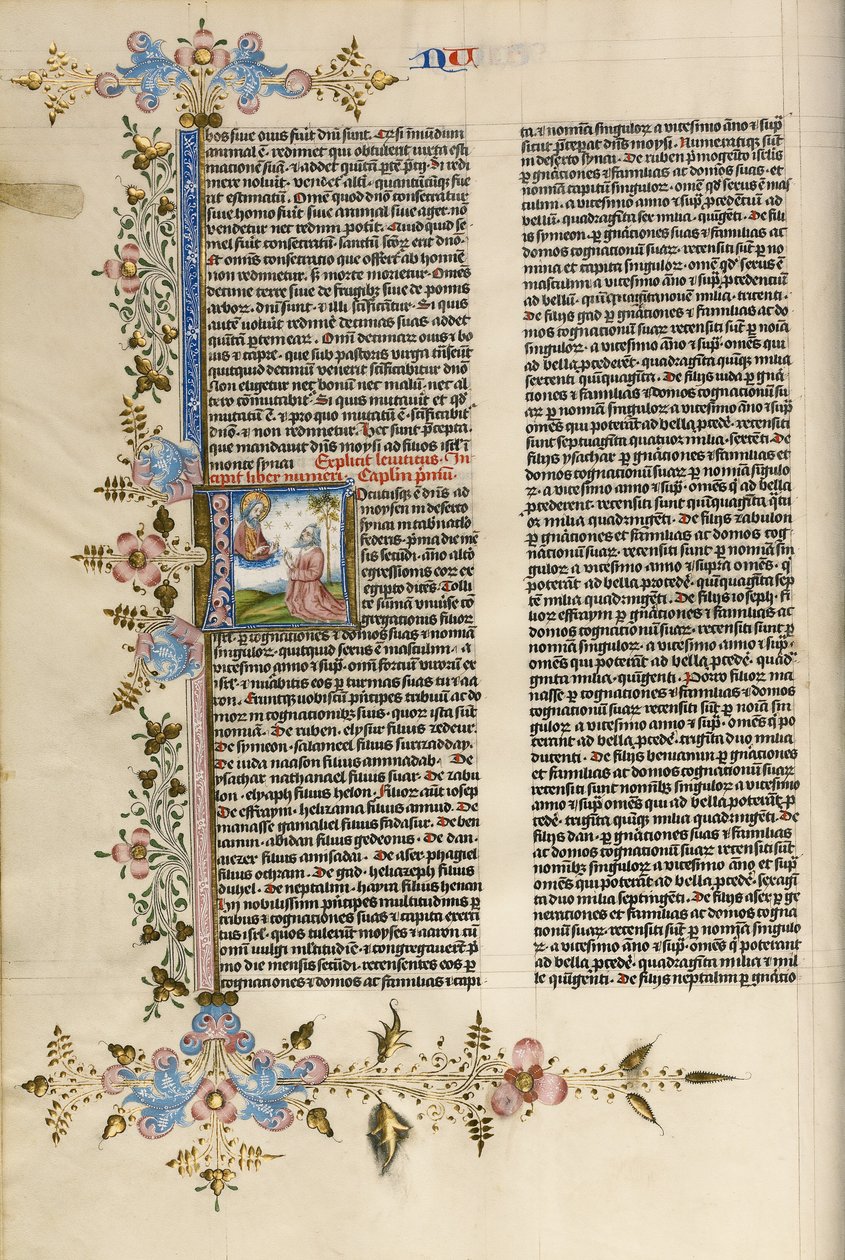 NU
bos siue ouis fuit dn̄i sunt. Qr̄ si īmūdum
animal ē. redimet qui obtulerit iuxta esti
mationē suā. ⁊ addet quītā ꝑtē p̄cij. Si redi
mere noluit. vendet altī. quantūcūqꝫ fue
rit estimatū. Omne quod dn̄o consecratur
siue homo fuit siue animal siue ager. nō
vendetur nec redimi potit. Quidquid se
mel fuit consecratū. sanctū sc̄or̄ erit dn̄o.
Et omnis consecratio que offert̄ ab homīe
non redimetur. s̄ morte morietur. Omēs
decime terre siue de frugibꝫ siue de pomis
arbor̄. dn̄i sunt. ⁊ illi sc̄ificātur. Si quis
autē voluit redimē decimas suas addet
quītā partem ear̄. Omī decimar̄ ouis ⁊ bo
uis ⁊ capre. que sub pastoris virga trāseūt
quitquid decimū venerit sc̄ificabitur dn̄o
Non eligetur nec bonū nec malū. nec al
tero cōmutabit̄. Si quis mutauit et qd̄
mutatū ē. ⁊ pro quo mutatū ē. sc̄ificabit̄
dn̄o. ⁊ non redimetur. Hec sunt p̄cepta.
que mandauit dn̄s moysi ad filios isrl̄ ī
monte synai Explicit leuiticus. In
cipit liber numeri. Caplm̄ pm̄ū.
Locutusqꝫ ē dn̄s ad
moysen in deserto
synai in tab̄nac̄lo
federis. p̄ma die mē
sis secūdi. āno alt̄o
egressionis eor̄ ex
egipto dicēs. Tolli
te sūmā vniuse cō
gregationis filior̄
isrl̄. ꝑ cognationes ⁊ domos suas ⁊ nomīa
singulor̄. quitquid sexus ē masculinī. a
vicesimo anno ⁊ sup̄. omī fortiū viror̄ ex
isrl̄. ⁊ nūabitis eos ꝑ turmas suas tu ⁊ aa
ron. Eruntqꝫ vobiscū prīcipes tribuū ac do
mor̄ in cognationibꝫ suis. quor̄ ista sūt
nomīa. De ruben. elysur filius sedeur.
De symeon. salamiel filius surizadday.
De iuda naason filius aminadab. De
ysachar nathanael filius suar. De zabu
lon. elyaph filius helon. Filior̄ aūt iosep
De effraym. helizama filius amiud. De
manasse gamaliel filius fadasur. De ben
iamin. abidan filius gedeonis. De dan.
aiezer filius amisadai. De aser phagiel
filius ochram. De gad. heliazeph filius
duhel. De neptalim. hayra filius henan
Hij nobilissimi prīcipes multitudinis ꝑ
tribus ⁊ cognationes suas ⁊ capita exerci
tus isrl̄. quos tulerūt moyses ⁊ aaron cū
omī vulgi ml̄titudīe. ⁊ congregauerūt p̄
mo die mensis secūdi. recensentes eos ꝑ
cognationes ⁊ domos ac familias ⁊ capi
ta. ⁊ nomīa singulor̄ a vicesimo āno ⁊ sup̄
sicut p̄ceperat dn̄s moysi. Numeratiqꝫ sūt
in deserto synai. De ruben p̄mogeīto isrl̄is
ꝑ gn̄ationes ⁊ familias ac domos suas. et
nomīa capitū singulor̄. omē qd̄ sexus ē mas
culini. a vicesimo āno ⁊ sup̄. p̄cedentiū ad
bellū. quadragīta sex milia. quīgēti. De fili
is symeon. ꝑ gn̄ationes suas ⁊ familias ac
domos cognationū suar̄. recensiti sūt ꝑ no
mina et capita singulor̄. omē qd̄ sexus ē
masculinī a vicesimo āno ⁊ sup̄. p̄cedentiū
ad bellū. quīquagītanouē milia. tricenti.
De filijs gad ꝑ gn̄ationes ⁊ familias ac do
mos cognationū suar̄ recensiti sūt ꝑ noīa
singulor̄. a vicesimo āno ⁊ sup̄. omēs qui
ad bella p̄cederēt. quadragīta quīqꝫ milia
sexcenti quīquagīta. De filijs iuda ꝑ gn̄a
tiones ⁊ familias ⁊ domos cognationū su
ar̄ ꝑ nomīa singulor̄ a vicesimo āno ⁊ sup̄
omēs qui poterāt ad bella p̄cedē. recensiti
sunt septuagīta quatuor milia. sexcēti. De
filijs ysachar ꝑ gn̄ationes ⁊ familias et
domos cognationū suar̄ ꝑ nomīa sīgulo
r̄. a vicesimo anno ⁊ sup̄. omēs q̄ ad bella
p̄cederent. recensiti sunt quīquagīta q̄tu
or milia quadrīgēti. De filijs zabulon
ꝑ gn̄ationes ⁊ familias ac domos cog
nationū suar̄. recensiti sunt ꝑ nomīa sīn
gulor̄ a vicesimo anno ⁊ supra omēs. q̄
poterant ad bella procedē. quīquagīta sep
tē milia quadrīgēti. De filijs ioseph. fi
lior̄ effraym ꝑ gn̄ationes ⁊ familias ac
domos cognationū suar̄. recensiti sunt ꝑ
nomīa singulor̄. a vicesimo anno ⁊ sup̄.
omēs qui poterāt ad bella p̄cedē. quad̄
gīnta milia. quīgenti. Porro filior̄ ma
nasse ꝑ cognationes ⁊ familias ⁊ domos
cognationū suar̄ recensiti sūt ꝑ noīa sin
gulor̄ a vicesimo anno ⁊ sup̄. omēs q̄ po
terant ad bella p̄cedē. trigīta duo milia
ducenti. De filijs beniamin ꝑ gn̄ationes
et familias ac domos cognationū suar̄
recensiti sunt nomībꝫ singulor̄ a vicesimo
anno ⁊ sup̄. omēs qui ad bella poterāt p̄
cedē. trigīta quīqꝫ milia quadrīgenti. De
filijs dan. ꝑ gn̄ationes suas ⁊ familias
ac domos cognationū suar̄ recensiti sūt
nomībꝫ singulor̄ a vicesimo āno et sup̄
omēs qui poterāt ad bella p̄cedē. sexagī
ta duo milia septīgenti. De filijs aser ꝑ ge
nerationes et familias ac domos cogna
tionū suar̄. recensiti sūt ꝑ nomīa singulo
r̄. a vicesimo āno ⁊ sup̄. omēs q̄ poterant
ad bella p̄cedē. quadragīta milia ⁊ mil
le quīgenti. De filijs neptalim ꝑ gn̄atio